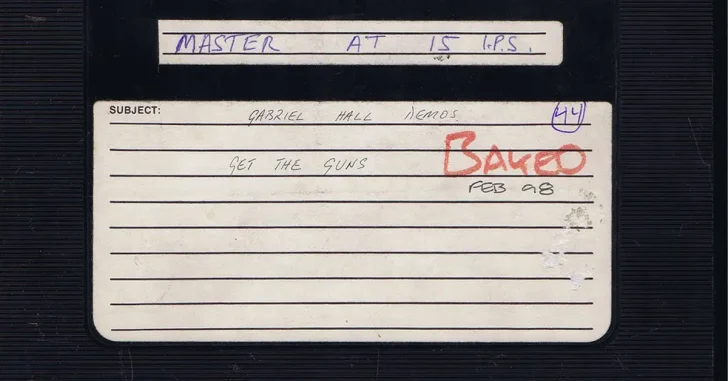 MASTER AT 15 I.P.S.
SUBJECT: GABRIEL HALL DEMOS 44
GET THE GUNS BAKED
FEB 98